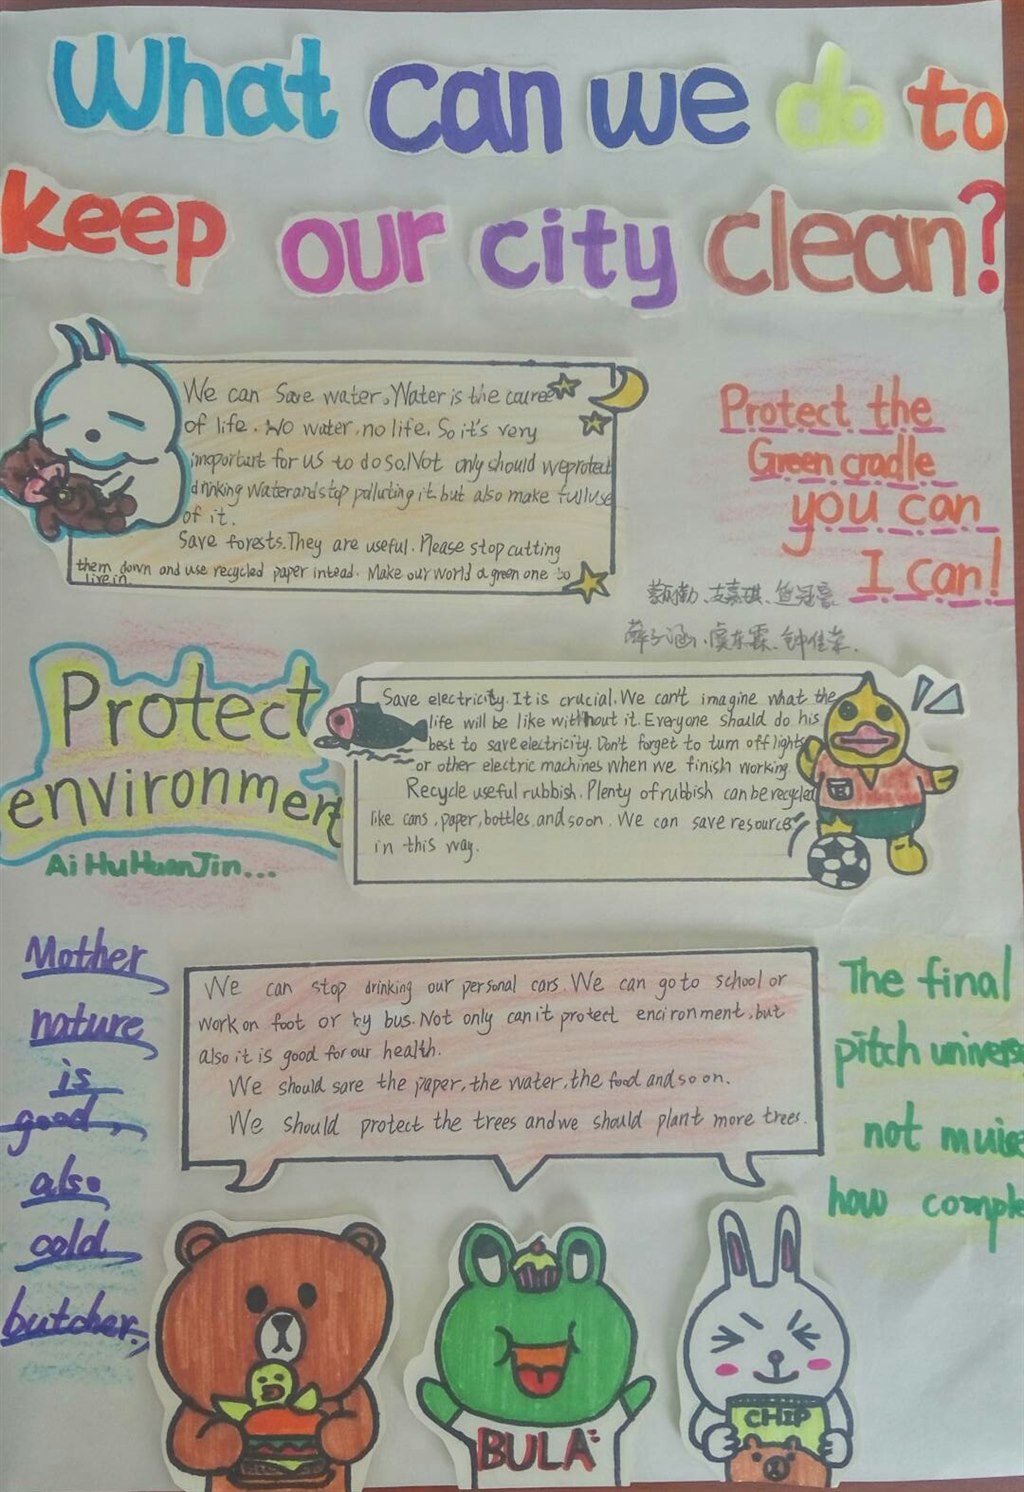 What can we do to
keep our city clean?
We can Save water. Water is the cource
of life. No water, no life. So it's very
imoportart for us to do so. Not only should weprotect
drinking Waterandstop polluting it. but also make fulluse
of it.
Save forests. They are useful. Please stop cutting
them down and use recycled paper intead. Make our world a green one to
live in.
Protect the
Green cradle
you can
I can!
Protect
environment
Ai HuHuanJin...
Save electricity. It is crucial. We can't imagine what the
life will be like without it. Everyone should do his
best to save electricity. Don't forget to turn off lights
or other electric machines when we finish working.
Recycle useful rubbish. Plenty of rubbish can be recycled
like cans, paper, bottles. and so on. We can save resources
in this way.
Mother
nature
is
good,
also
cold
butcher.
We can stop drinking our personal cars. We can go to school or
work on foot or by bus. Not only can it protect encironment, but
also it is good for our health.
We should sare the paper, the water, the food and so on.
We should protect the trees and we should plant more trees.
The final
pitch univers
not
how comple
BULA
CHIP